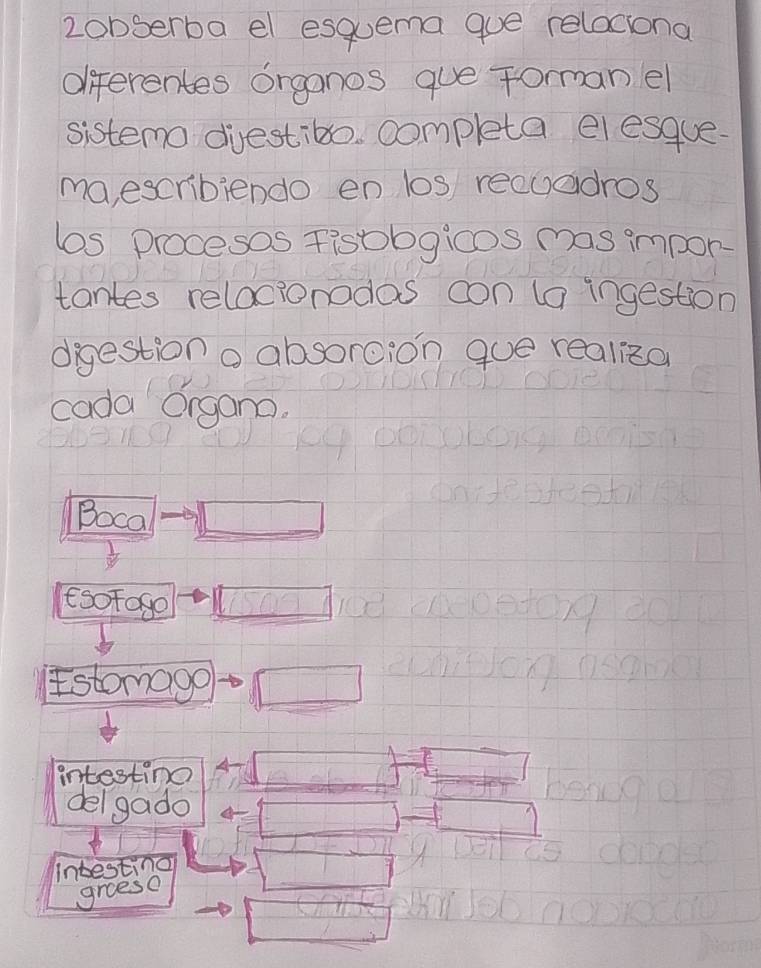 2obserba el esquema que relaciona
diferentes órganos que forman el
sistema divestibo. completa el esque-
ma, escribiendo en los recuadros
los procesos fisiologicos mas impor-
tantes relacionados con la ingestion
digestion o absorción que realiza
cada órgano.
Boca
Esofago
Estomago
intestino
delgado
intestino
grceso